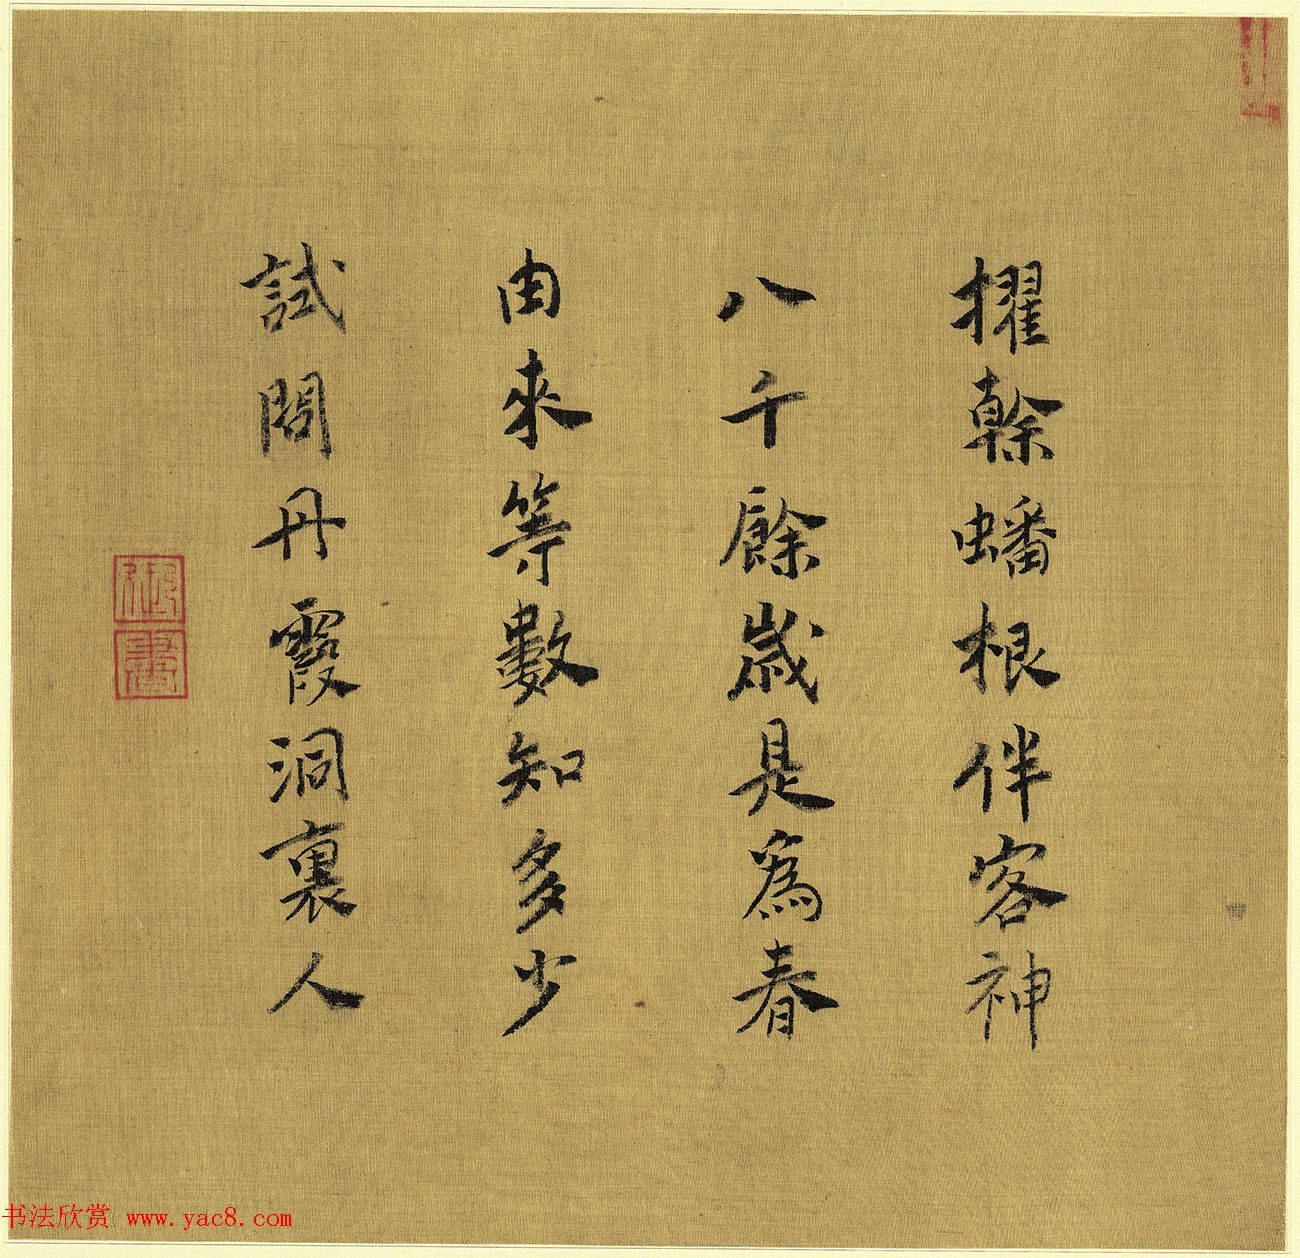 擢榦蟠根伴容神
八千餘歲是爲春
由來等數知多少
試問丹霞洞裏人
御書
书法欣赏 www.yac8.com